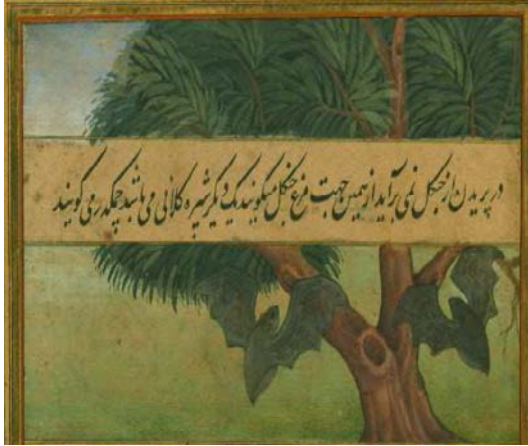 در پریدن از جنکل نمی برآید از همین جهت مرغ جنکل میکویند یک دیکر شپره کلانی می باشد چمکدر می کویند